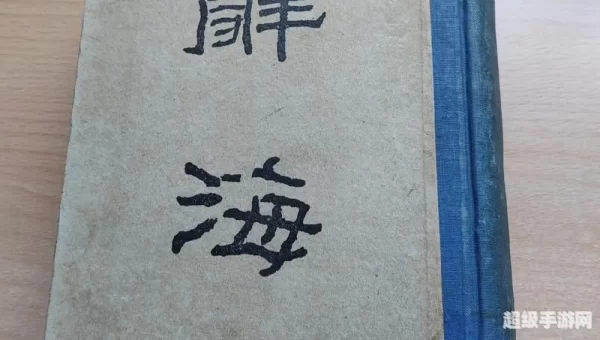 辭
海
超级手游网